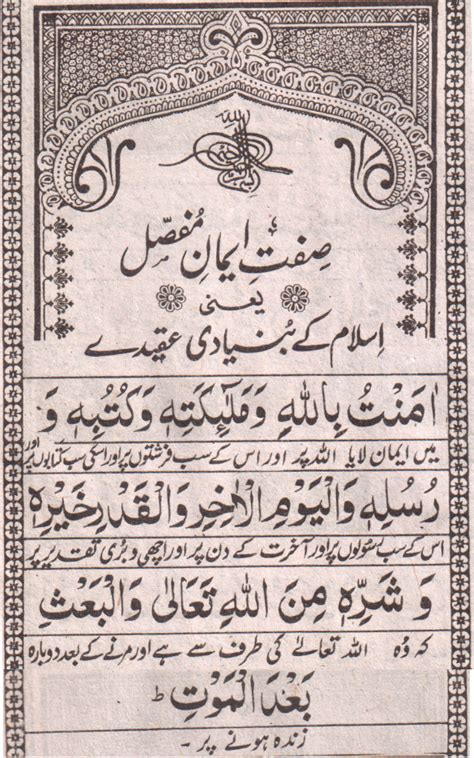 صِفتِ ایمانِ مُفصّل
یعنی
اِسلام کے بُنیادی عقیدے
اٰمَنْتُ بِاللهِ وَمَلٰٓئِكَتِهٖ وَكُتُبِهٖ وَ
میں ایمان لایا اللہ پر اور اس کے سب فرشتوں پر اور اسکی سب کتابوں پر اور
رُسُلِهٖ وَالْيَوْمِ الْاٰخِرِ وَالْقَدْرِ خَيْرِهٖ
اس کے سب رسولوں پر اور آخرت کے دن پر اور اچھی و بُری تقدیر پر
وَ شَرِّهٖ مِنَ اللهِ تَعَالٰى وَالْبَعْثِ
کہ وُہ اللہ تعالےٰ کی طرف سے ہے اور مرنے کے بعد دوبارہ
بَعْدَ الْمَوْتِ ط
زندہ ہونے پر ۔